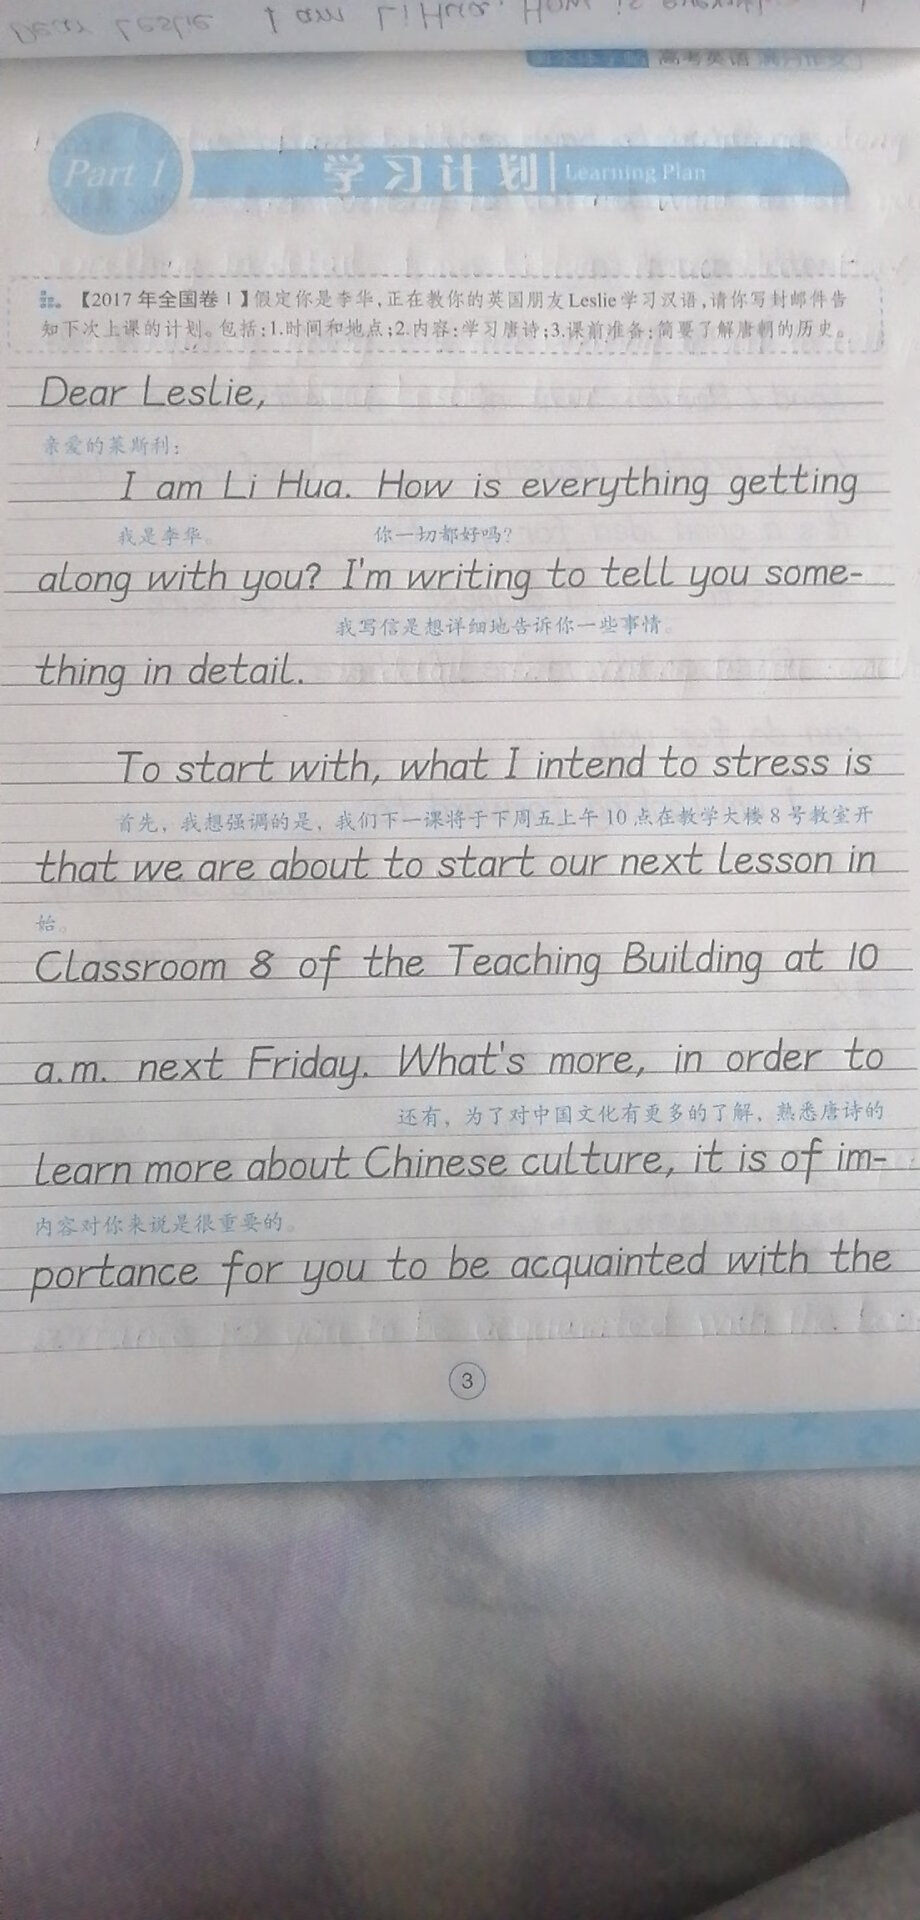 Dear Leslie I am Li Hua. How is
高考英语满分作文
Part 1
学习计划 Learning Plan
【2017年全国卷Ⅰ】假定你是李华,正在教你的英国朋友Leslie学习汉语,请你写封邮件告
知下次上课的计划。包括:1.时间和地点;2.内容:学习唐诗;3.课前准备:简要了解唐朝的历史。
Dear Leslie,
亲爱的莱斯利:
I am Li Hua. How is everything getting
我是李华。 你一切都好吗?
along with you? I'm writing to tell you some-
我写信是想详细地告诉你一些事情。
thing in detail.
To start with, what I intend to stress is
首先，我想强调的是，我们下一课将于下周五上午10点在教学大楼8号教室开
that we are about to start our next lesson in
始。
Classroom 8 of the Teaching Building at 10
a.m. next Friday. What's more, in order to
还有，为了对中国文化有更多的了解，熟悉唐诗的
learn more about Chinese culture, it is of im-
内容对你来说是很重要的。
portance for you to be acquainted with the
3